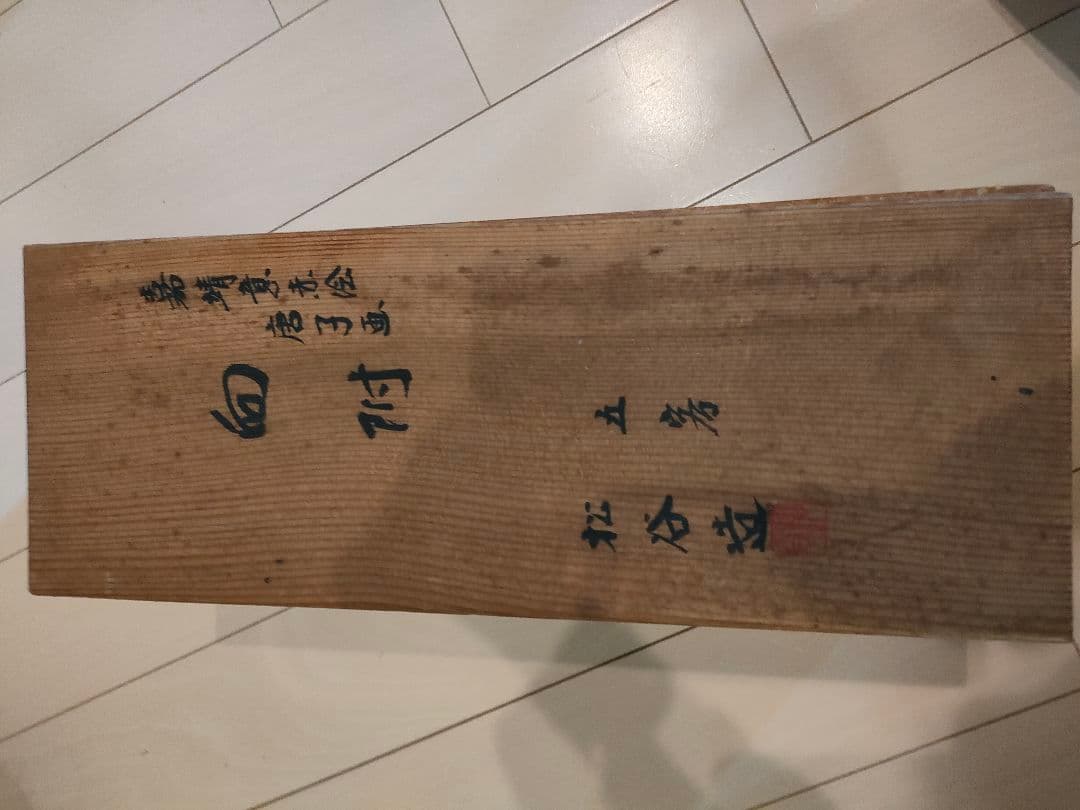 嘉靖意赤絵
唐子画
向附
五客
松谷造